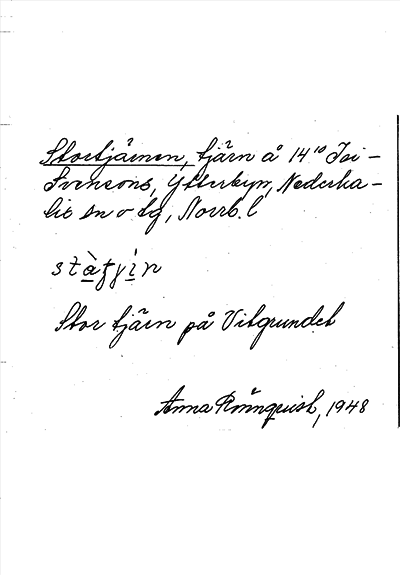 Stortjärnen, tjärn å 14¹⁰ Joi-
Svensons, Ytterbyn, Nederka-
lix sn o tg, Norrb. l
Stor tjärn på Vitgrundet
Anna Rönnquist, 1948